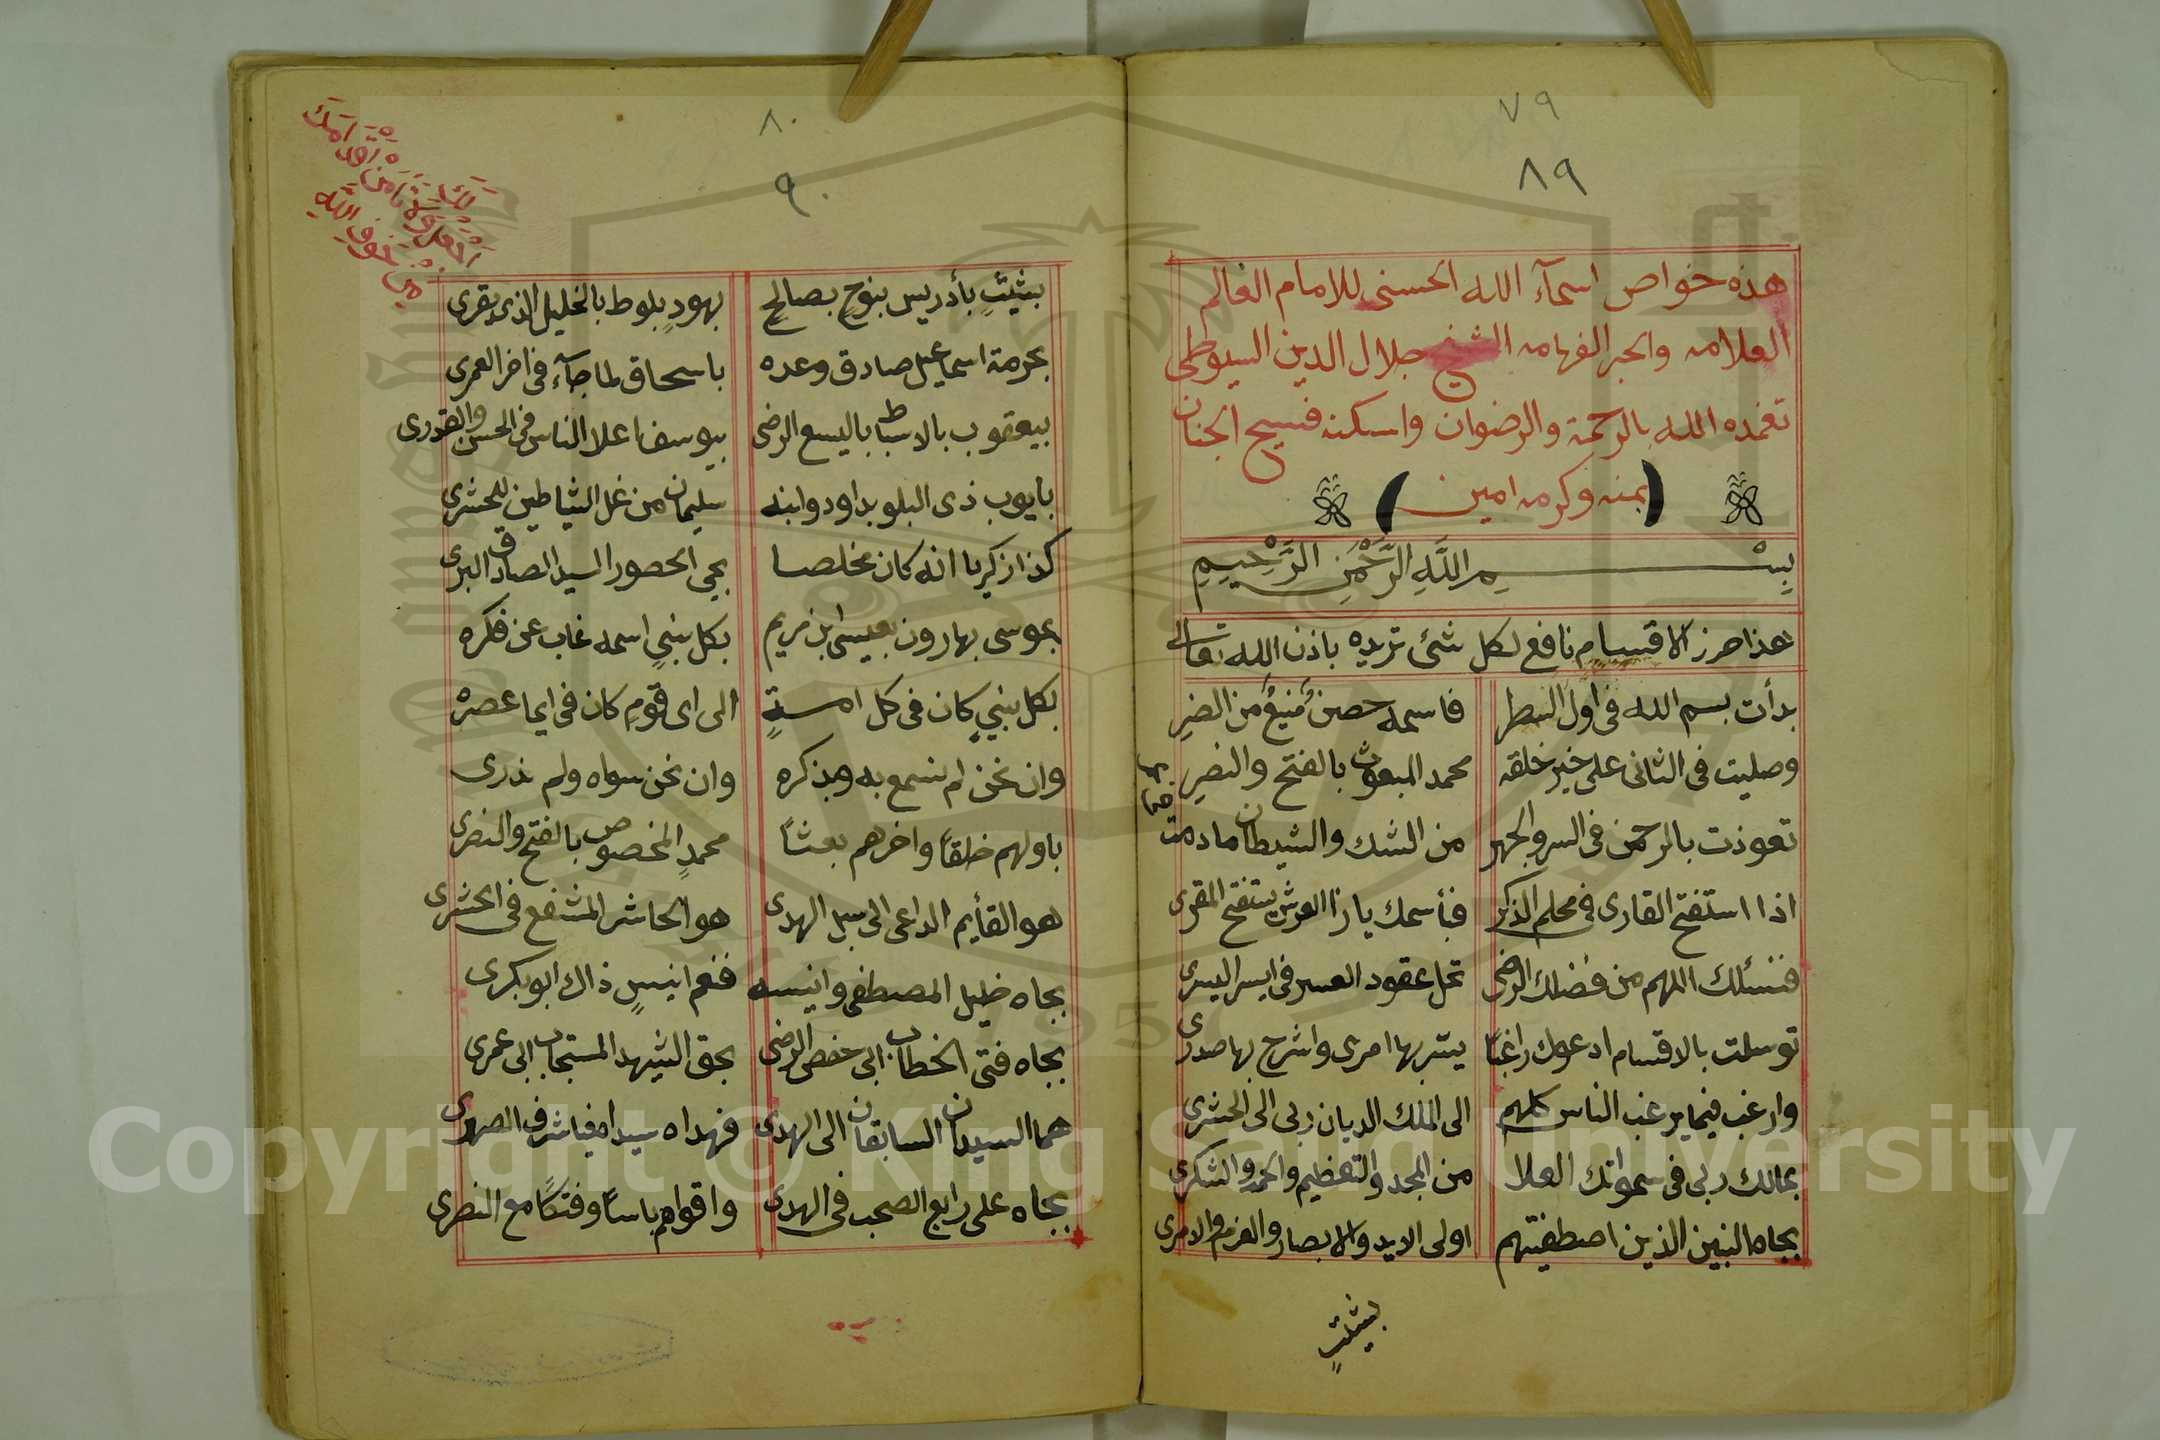 ٧٩
٨٩
هذه خواص اسمآء الله الحسنى للامام العالم
العلامه والحبر الفهامه الشيخ جلال الدين السيوطى
تغمده الله بالرحمة والرضوان واسكنه فسيح الجنان
(بمنه وكرمه امين)
بِسْــــمِ اللَّهِ الرَّحْمٰنِ الرَّحِيمِ
هذا حرز الاقسام نافع لكل شئ تريده باذن الله تعالى
بدأت بسم الله فى اول السطر فاسمه حصن منيع من الضرِ
وصليت فى الثانى على خير خلقه محمد المبعوث بالفتح والنصرِ
تعوذت بالرحمن فى السر والجهر من الشك والشيطان مادمت
اذا استفتح القارى فى محلم الذكر فبأسمك ياذا العرش يستفتح المقرى
فنسئلك اللهم من فضلك الرضى تحل عقود العسر فى ايسر اليسرى
توسلت بالاقسام ادعوك راغبًا ييسر بها امرى واشرح بها صدرى
وارغب فيما يرغب الناس كلهم الى الملك الديان ربى الى الحشرى
بمالك ربى فى سمواتك العلا من المجد والتعظيم والحمد والشكرى
بجاه النبين الذين اصطفيتهم اولى الايد والابصار والعزم والامرى
بشيثٍ
٨٠
٩٠
بشيثٍ بأدريس بنوحٍ بصالحٍ بهودٍ بلوط بالخليل الذى يقرى
بحرمة اسماعيل صادق وعده باسحاق لما جآء فى اخر العمرى
بيعقوب بالاسباط باليسع الرضى بيوسف اعلا الناس فى الحسن والقدرى
بايوب ذى البلو بداود وابنه سليمان من غل الشياطين للحشرى
كذا زكريا انه كان مخلصا بحيى الحصور السيد الصادق البرى
بموسى بهارون بعيسى ابن مريم بكل نبيٍ اسمه غاب عن فكره
بكل نبيٍ كان فى كل امةٍ الى اى قومٍ كان فى ايما عصره
وان نحن لم نسمع به وبذكره وان نحن سواه ولم ندرى
باولهم خلقًا واخرهم بعثًا محمدٍ المخصوص بالفتح والنصرى
هو القأيم الداعى الى سبل الهدى هو الحاشر المشفع فى الحشرى
بجاه خليل المصطفى وانيسه فنعم انيسٍ ذاك ابو بكرى
بجاه فتى الخطاب ابى حفص الرضى بحق الشهيد المستجاب ابى عمرى
هما السيدان السابقان الى الهدى فهداه سيدا فياشرف الصهرى
بجاه على رابع الصحب فى الهدى واقواهم باسًا وفتكًا مع النصرى
Copyright © King Saud University
1957